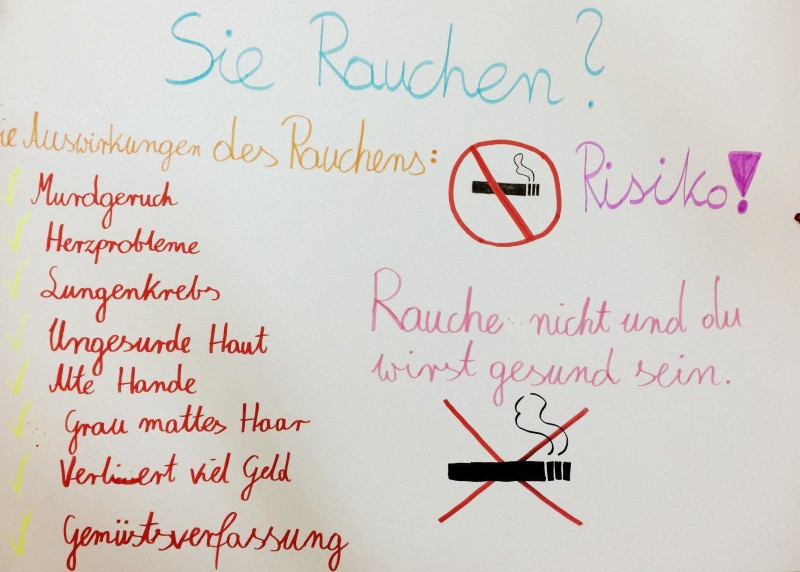 Sie Rauchen?
ie Auswirkungen des Rauchens:
Risiko!
Murdgeruch
Herzprobleme
Lungenkrebs
Ungesurde Haut
Alte Hande
Grau mattes Haar
Verliert viel Geld
Gemütsverfassung
Rauche nicht und du
wirst gesund sein.